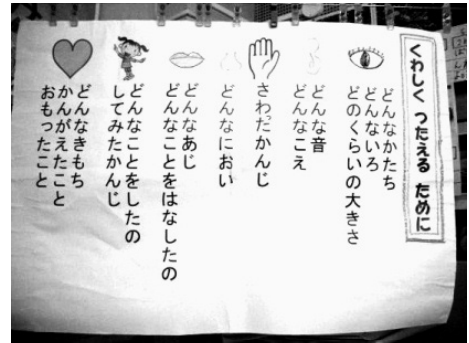 くわしく つたえる ために
どんなかたち
どんないろ
どのくらいの大きさ
どんな音
どんなこえ
さわったかんじ
どんなにおい
どんなあじ
どんなことをはなしたの
どんなことをしたの
してみたかんじ
どんなきもち
かんがえたこと
おもったこと